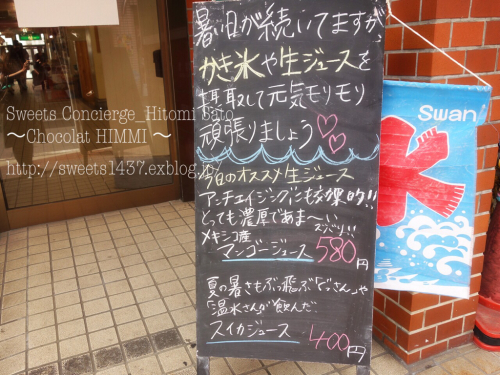 暑い日が続いてますが、
かき氷や生ジュースを
摂取して元気モリモリ
頑張りましょう♡♡
今日のオススメ生ジュース
アンチエイジングにも効果的!!
とっても濃厚であま〜い
ズバリ!!
メキシコ産
マンゴージュース 580円
夏の暑さもぶっ飛ぶ「どっさん」や
「温水さん」が飲んだ
スイカジュース 400円
Swan
Sweets Concierge_Hitomi Sato
～Chocolat HIMMI～
http://sweets1437.exblog.jp